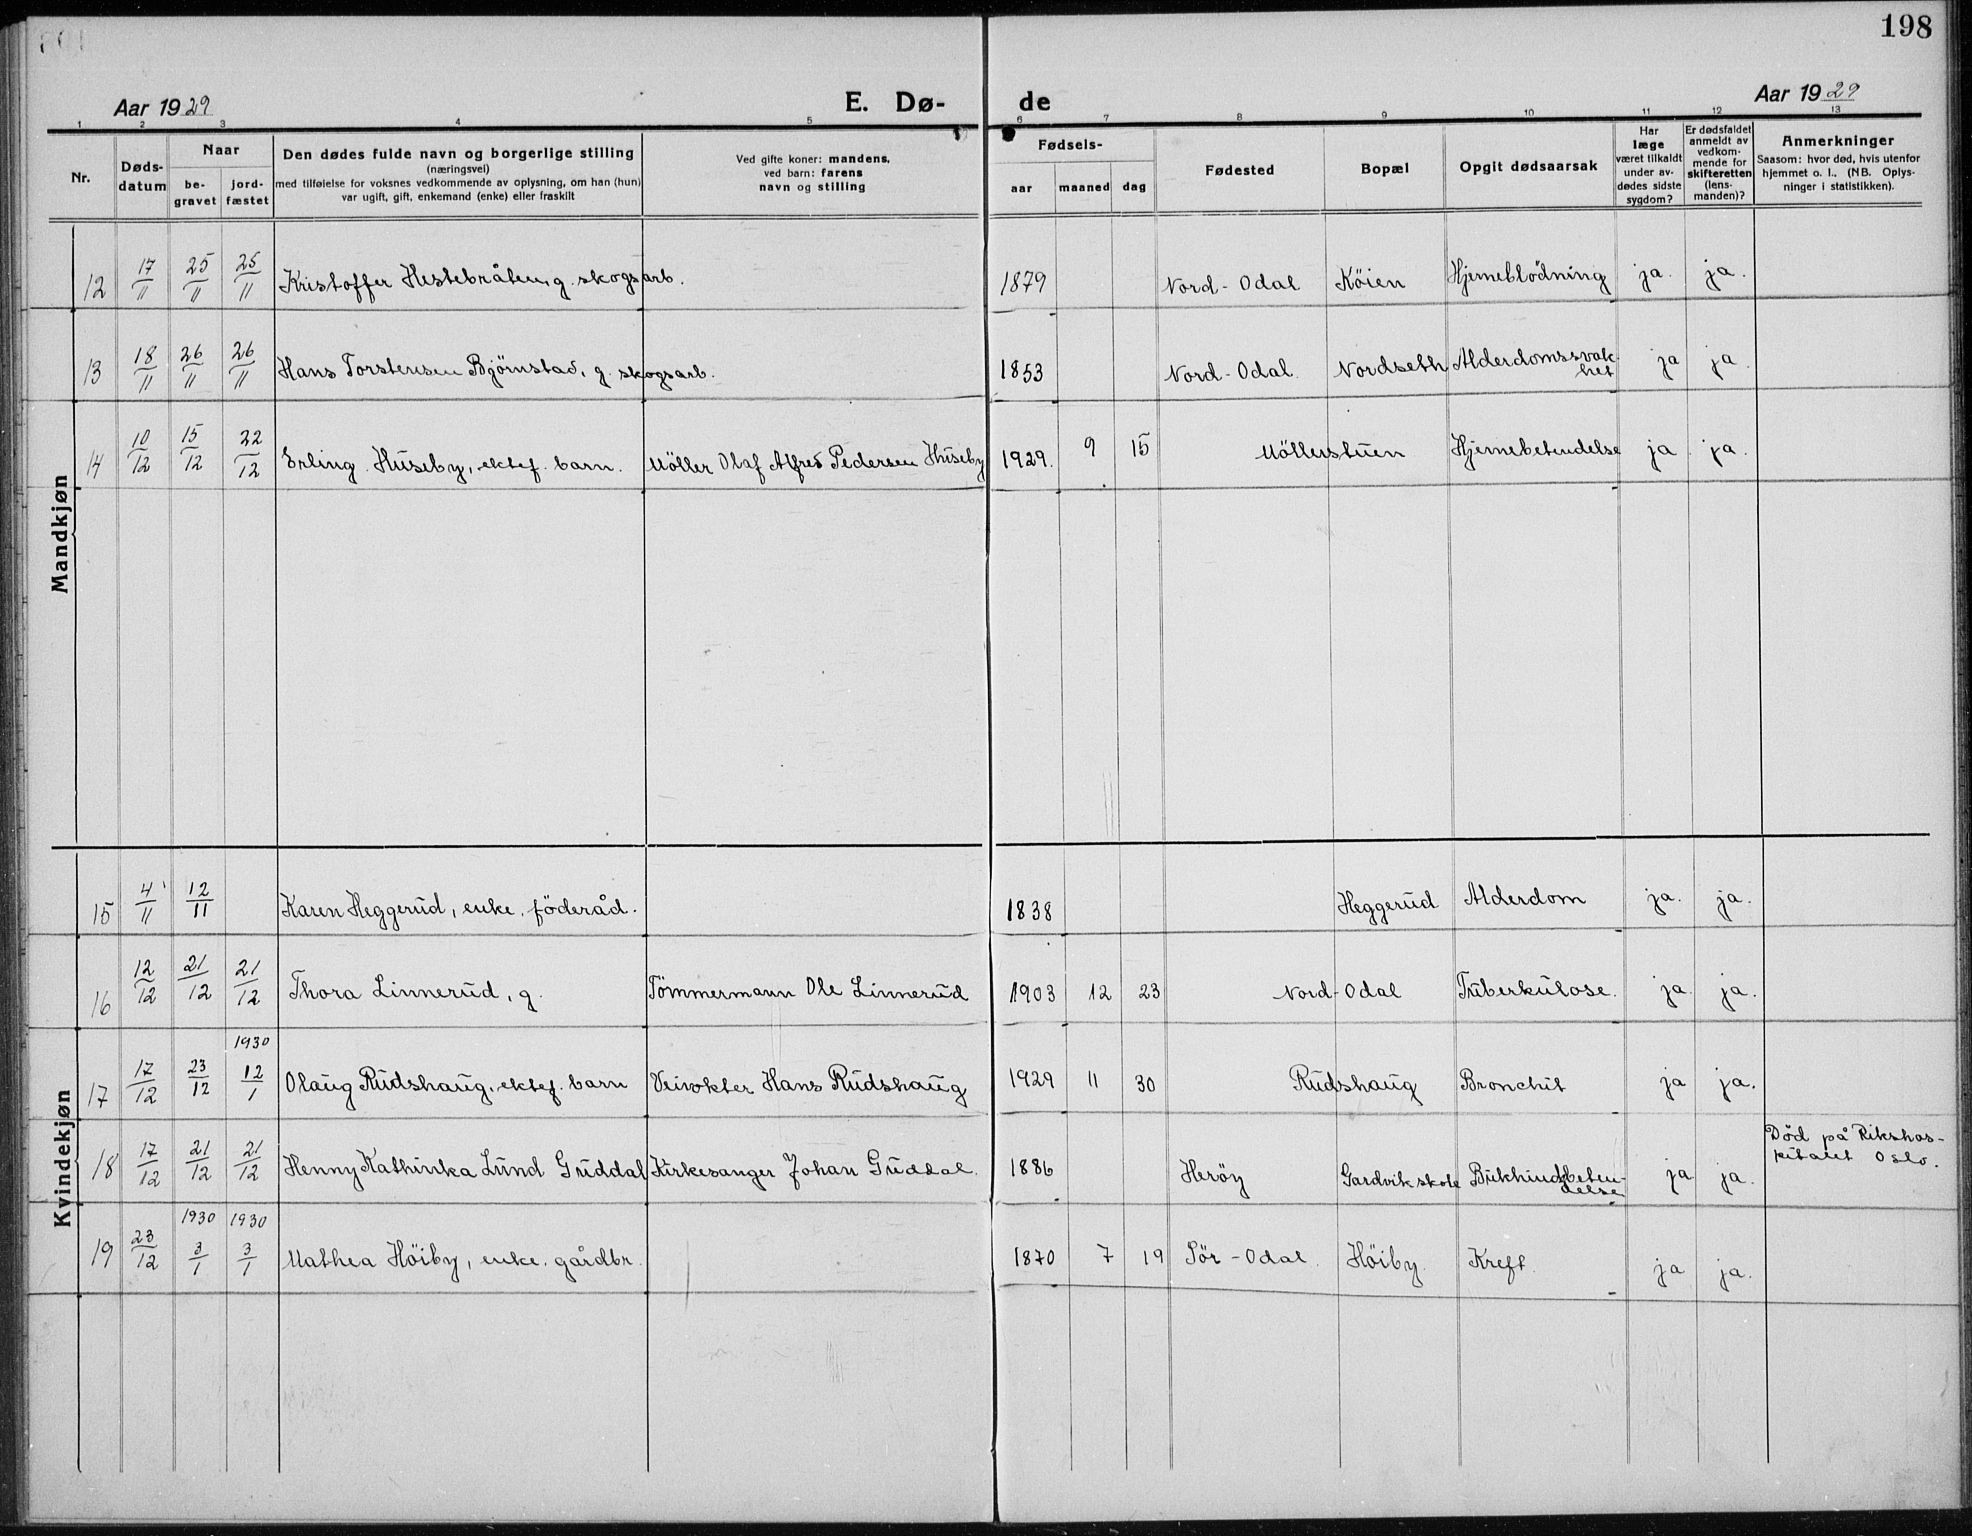 198
Aar 1929 E. Dø- de Aar 1929
1 2 3 4 5 6 7 8 9 10 11 12 13
Nr.
Døds-
datum
Naar
be-
gravet
jord-
fæstet
Den dødes fulde navn og borgerlige stilling
(næringsvei)
med tilføielse for voksnes vedkommende av oplysning, om han (hun)
var ugift, gift, enkemand (enke) eller fraskilt
Ved gifte koner: mandens,
ved barn: farens
navn og stilling
Fødsels-
aar maaned dag
Fødested
Bopæl
Opgit dødsaarsak
Har
læge
været tilkaldt
under av-
dødes sidste
sygdom?
Er dødsfaldet
anmeldt av
vedkom-
mende for
skifteretten
(lens-
manden)?
Anmerkninger
Saasom: hvor død, hvis utenfor
hjemmet o. l., (NB. Oplys-
ninger i statistikken).
Mandkjøn
12 17/11 25/11 25/11 Kristoffer Hestebråten, g. skogsarb. 1879 Nord-Odal Köien Hjerneblödning ja. ja.
13 18/11 26/11 26/11 Hans Torstensen Bjørnstad, g. skogsarb. 1853 Nord-Odal. Nordseth Alderdomssvak-
het ja ja
14 10/12 15/12 22/12 Erling Huseby, ektef. barn. Möller Olaf Alfred Pedersen Huseby 1929. 9 15 Möllerstuen Hjernebetendelse ja ja.
Kvindekjøn
15 4/11 12/11 Karen Heggerud, enke. föderåd. 1838 Heggerud Alderdom ja. ja.
16 12/12 21/12 21/12 Thora Linnerud, g. Tömmermann Ole Linnerud 1903 12 23 Nord-Odal Tuberkulose. ja. ja.
1930
17 17/12 23/12 12/1 Olaug Rudshaug, ektef. barn Veivokter Hans Rudshaug 1929 11 30 Rudshaug Bronchit ja ja.
18 17/12 21/12 21/12 Henny Kathinka Lund Guddal Kirkesanger Johan Guddal. 1886 Heröy Gardvik skole Bukhindebeten-
delse ja ja. Död på Rikshos-
pitalet Oslo.
1930 1930
19 23/12 3/1 3/1 Mathea Höiby, enke. gårdbr. 1870 7 19 Sör-Odal. Höiby. Kreft. ja ja.